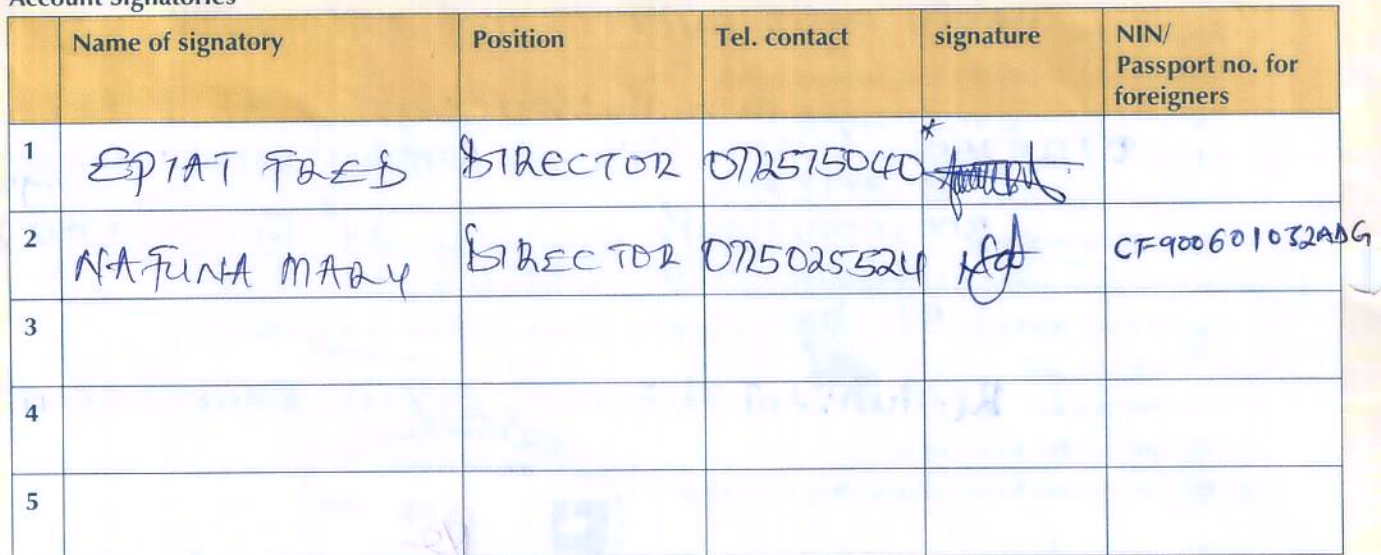 Account Signatories
Name of signatory Position Tel. contact signature NIN/
Passport no. for
foreigners
1 EPIAT FRED DIRECTOR 0772575040
2 NAFUNA MARY DIRECTOR 0775025524 CF900601032ADG
3
4
5